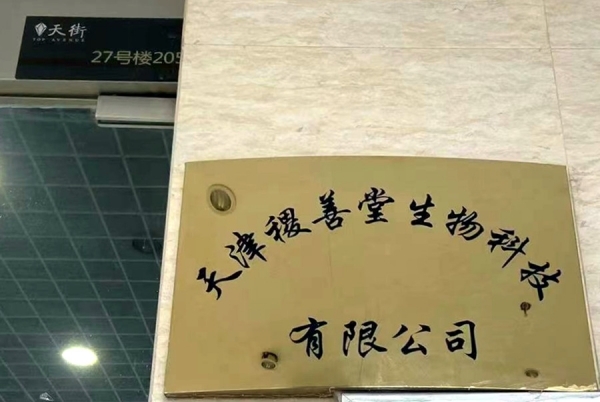 天街
TOP AVENUE
27号楼205
天津稷善堂生物科技
有限公司